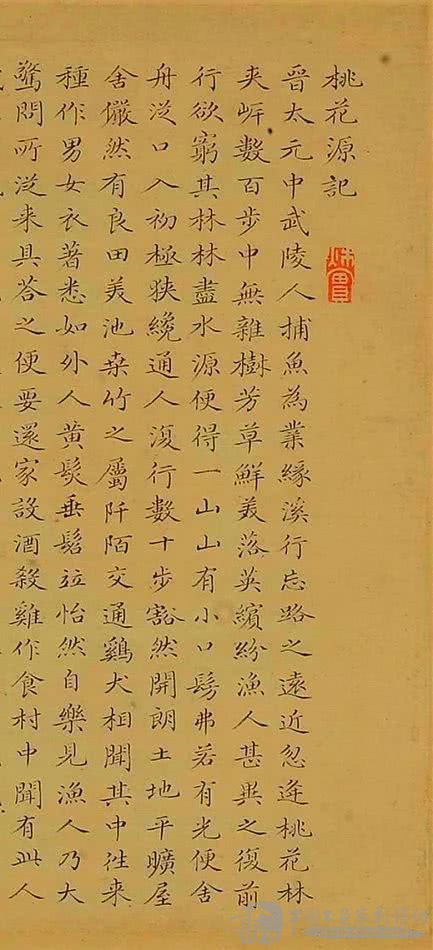 桃花源記
晉太元中武陵人捕魚為業緣溪行忘路之遠近忽逢桃花林
夾岸數百步中無雜樹芳草鮮美落英繽紛漁人甚異之復前
行欲窮其林林盡水源便得一山山有小口髣弗若有光便舍
舟從口入初極狹纔通人復行數十步豁然開朗土地平曠屋
舍儼然有良田美池桑竹之屬阡陌交通鷄犬相聞其中往來
種作男女衣著悉如外人黃髮垂髫並怡然自樂見漁人乃大
驚問所從來具答之便要還家設酒殺雞作食村中聞有此人